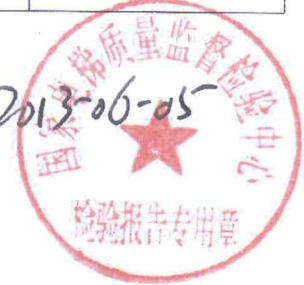 国家电梯质量监督检验中心
2013-06-05
检验报告专用章